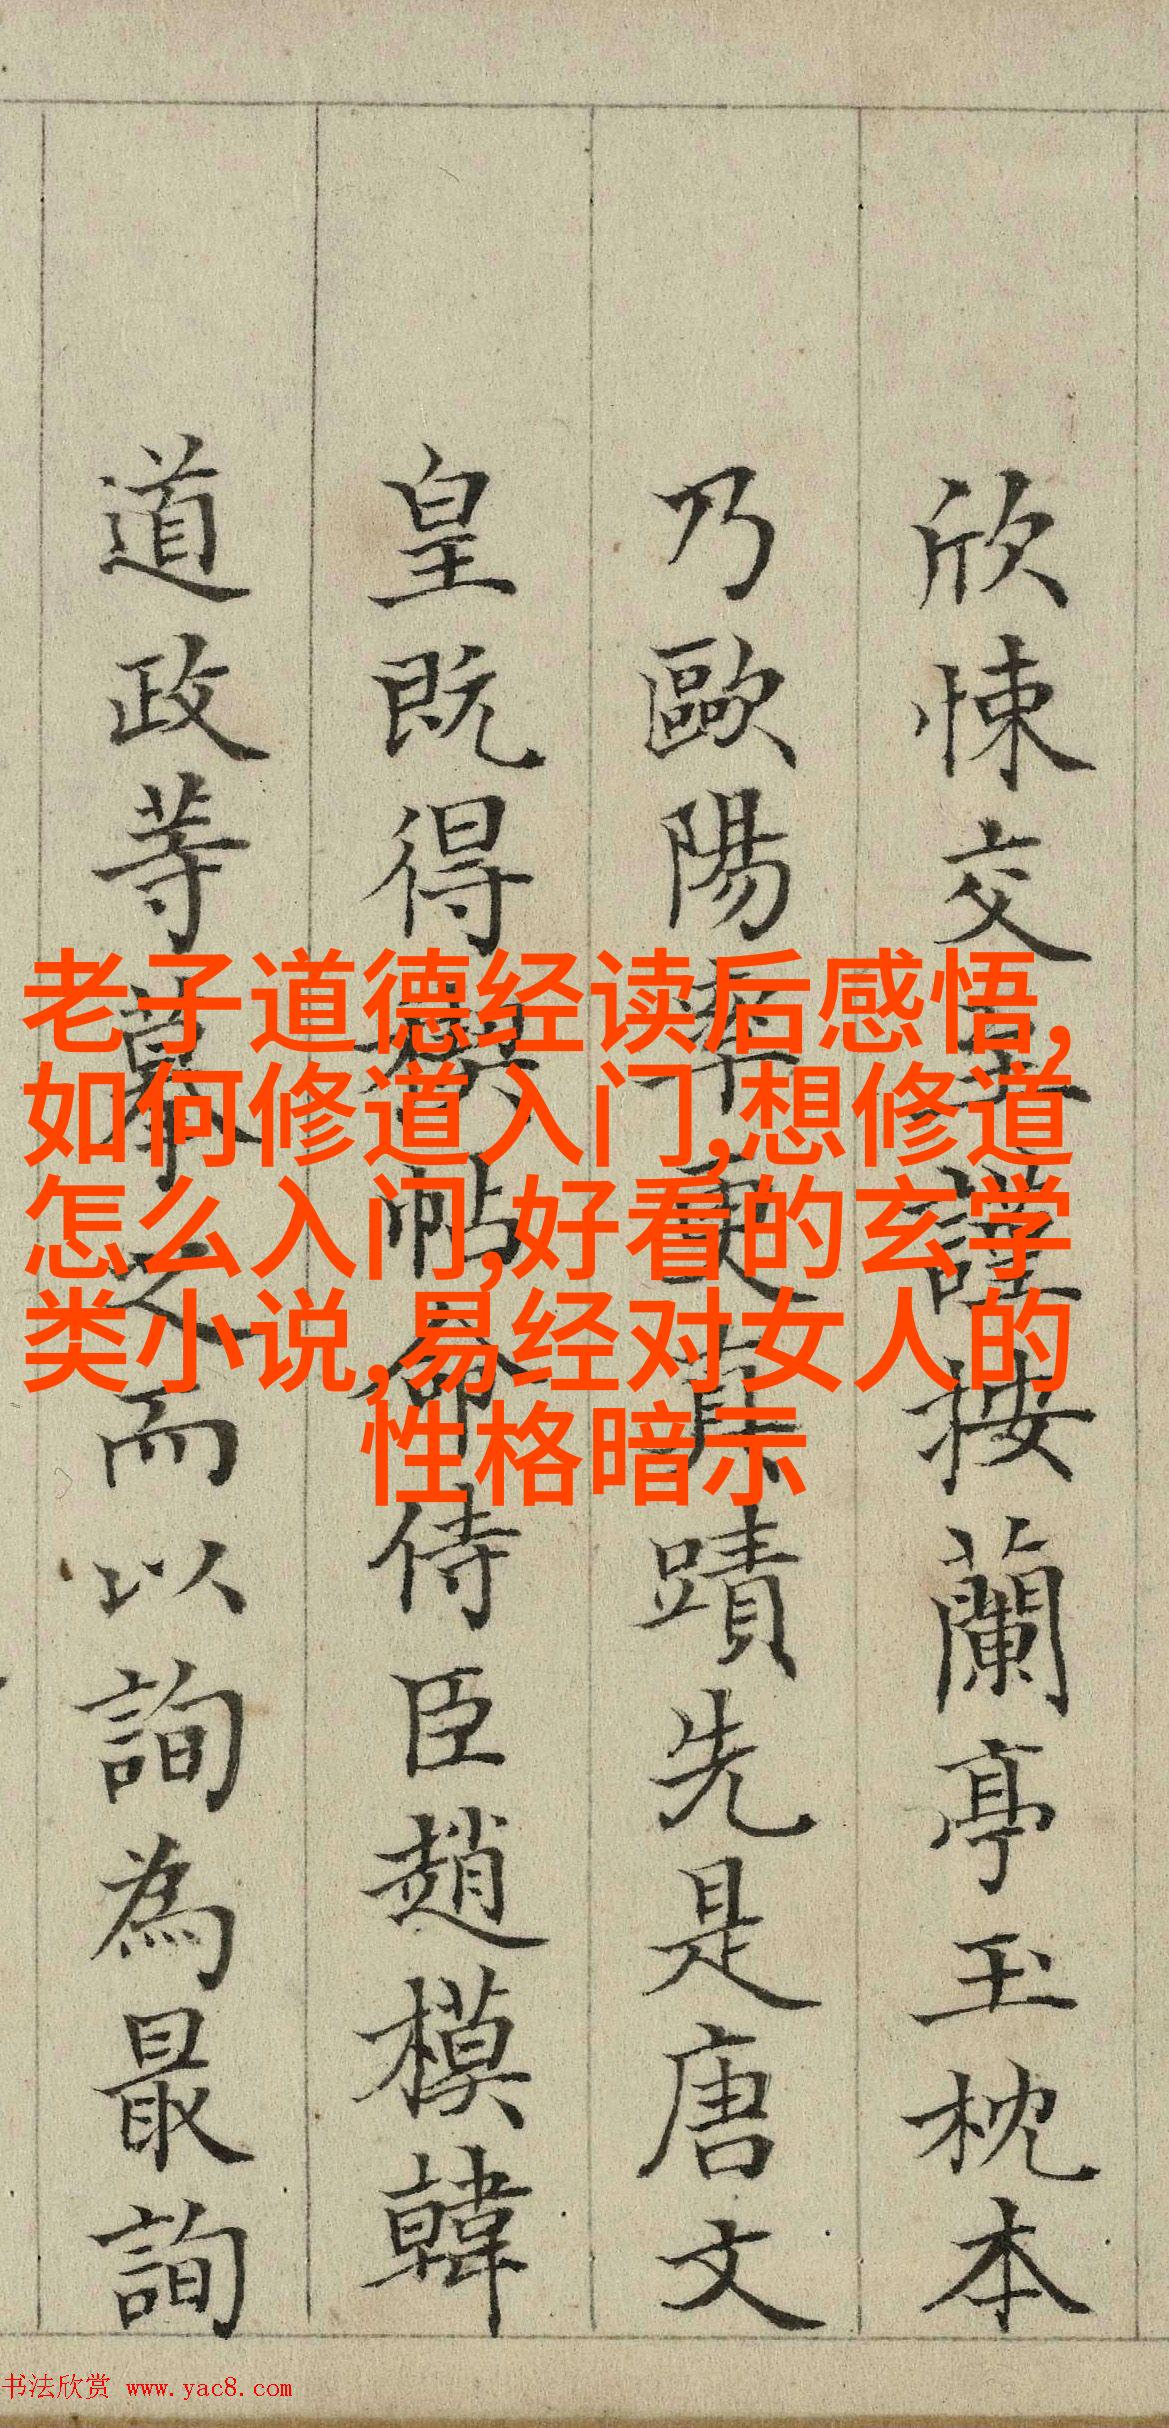 欣悚交至謹按蘭亭玉枕本
乃歐陽率更真蹟先是唐文
皇既得禊帖命侍臣趙模韓
道政等摹之而以詢為最詢
老子道德经读后感悟,
如何修道入门,想修道
怎么入门,好看的玄学
类小说,易经对女人的
性格暗示
书法欣赏 www.yac8.com